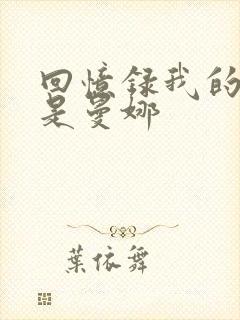 回憶録我的
是曼娜
葉依舞